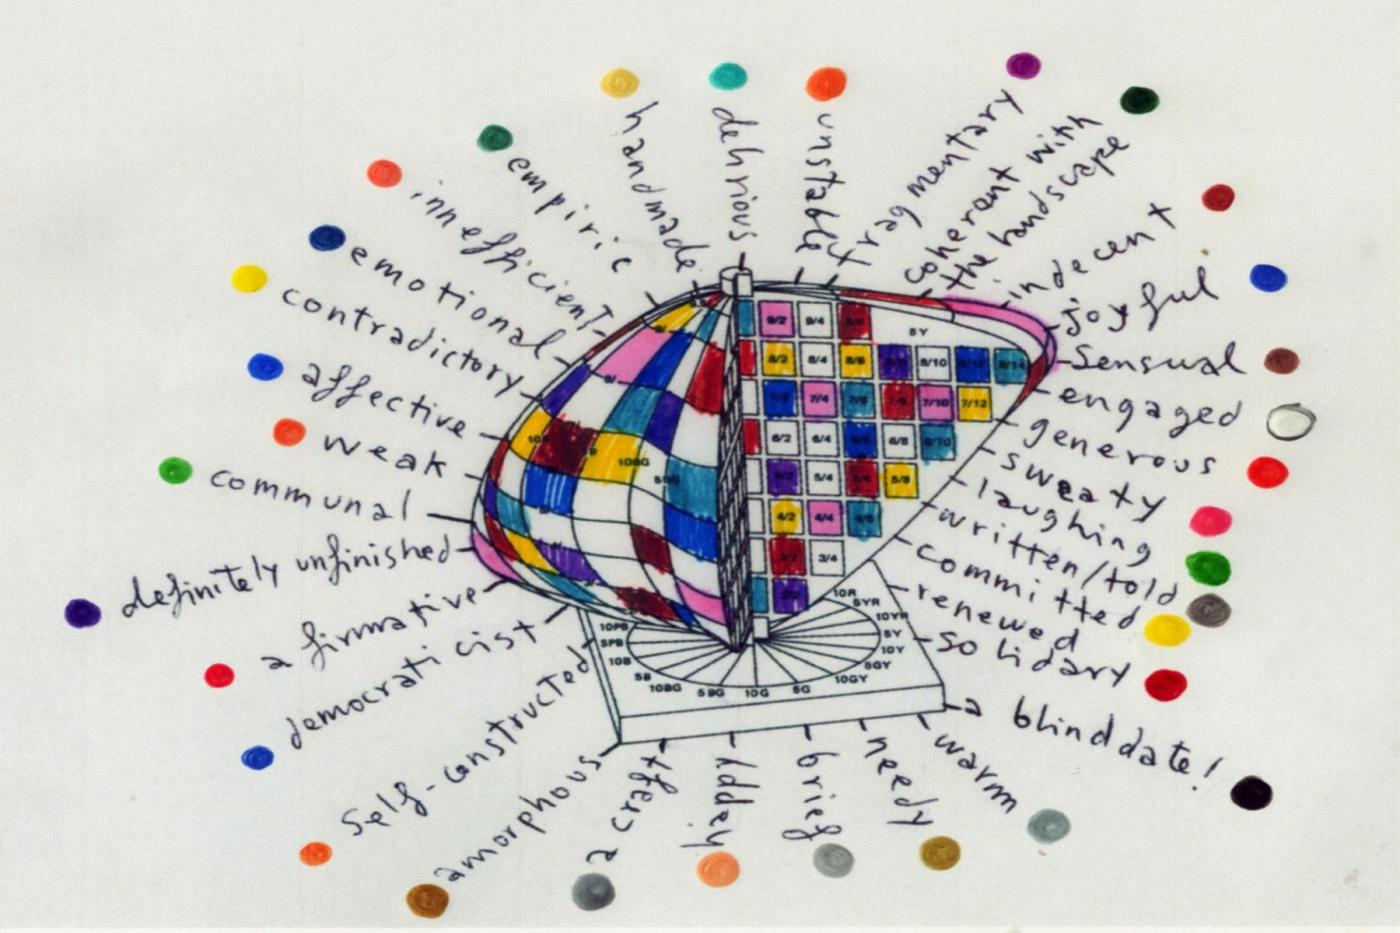 handmade
delirious
unstable
fragmentary
coherant with
the landscape
empiric
innefficient
indecent
emotional
joyful
contradictory
sensual
affective
engaged
weak
generous
communal
sweaty
laughing
definitely unfinished
written/told
committed
afirmative
renewed
democraticist
solidary
self-constructed
a blind date!
amorphous
a craft
happy
brief
needy
warm
9/2 9/4
5Y
8/2 8/4 8/6 8/10 8/12 8/14
7/2 7/4 7/6 7/8 7/10 7/12
6/2 6/4 6/6 6/8 6/10
5/2 5/4 5/6 5/8
4/2 4/4 4/6
3/4
10BG
10R
5YR
10YR
5Y
10Y
5GY
10GY
5G
10G
5BG
10BG
5B
10B
5PB
10PB